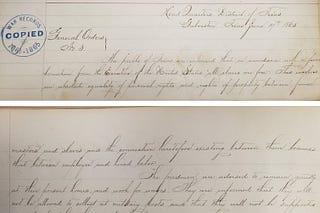 WAR RECORDS
COPIED
1861-1865
Head Quarters District of Texas
Galveston Texas June 19th 1865.
General Orders
No. 3.
The people of Texas are informed that in accordance with a
Proclamation from the Executive of the United States all slaves are free. This involves
an absolute equality of personal rights and rights of property between former
masters and slaves and the connection heretofore existing between them becomes
that between employer and hired labor.
The freedmen are advised to remain quietly
at their present homes, and work for wages. They are informed that they will
not be allowed to collect at military posts and that they will not be supported